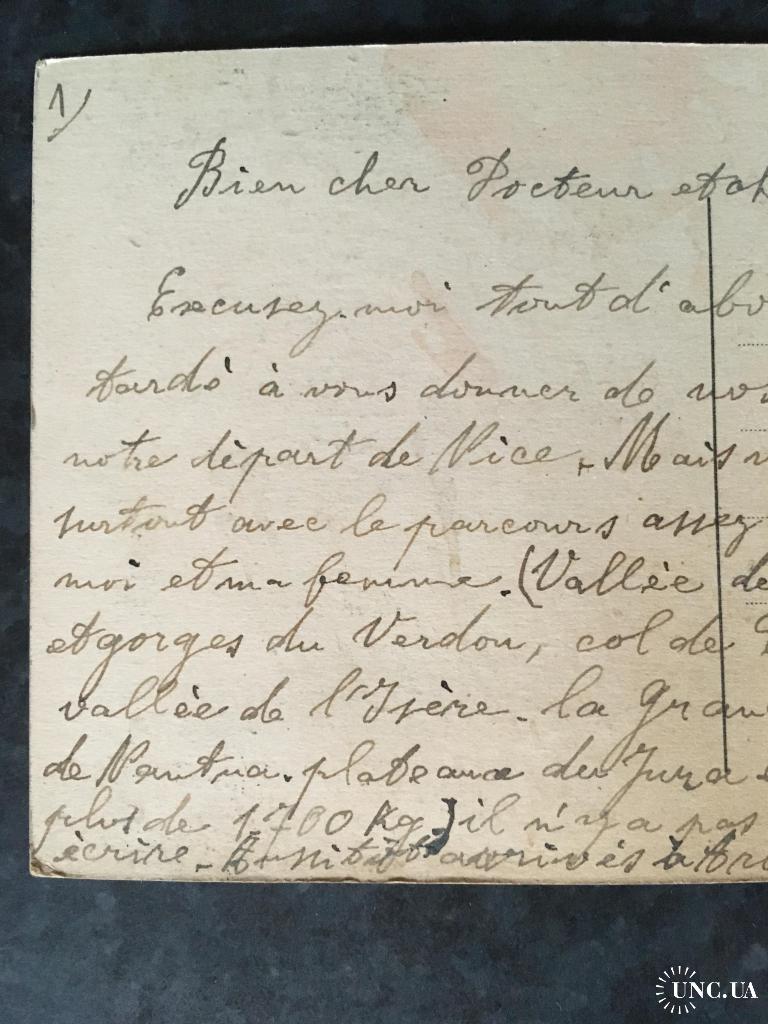 1)
Bien cher Docteur et ch
Excusez-moi tout d'abo
tardé à vous donner de nou
notre départ de Nice. Mais v
surtout avec le parcours assez
moi et ma femme. (Vallée de
et gorges du Verdon, col de
vallée de l'Isère. la Gran
de Nantua. plateaux du Jura
plus de 1700 Kg) il n'y a pas
écrire. Aussitôt arrivés à
UNC.UA